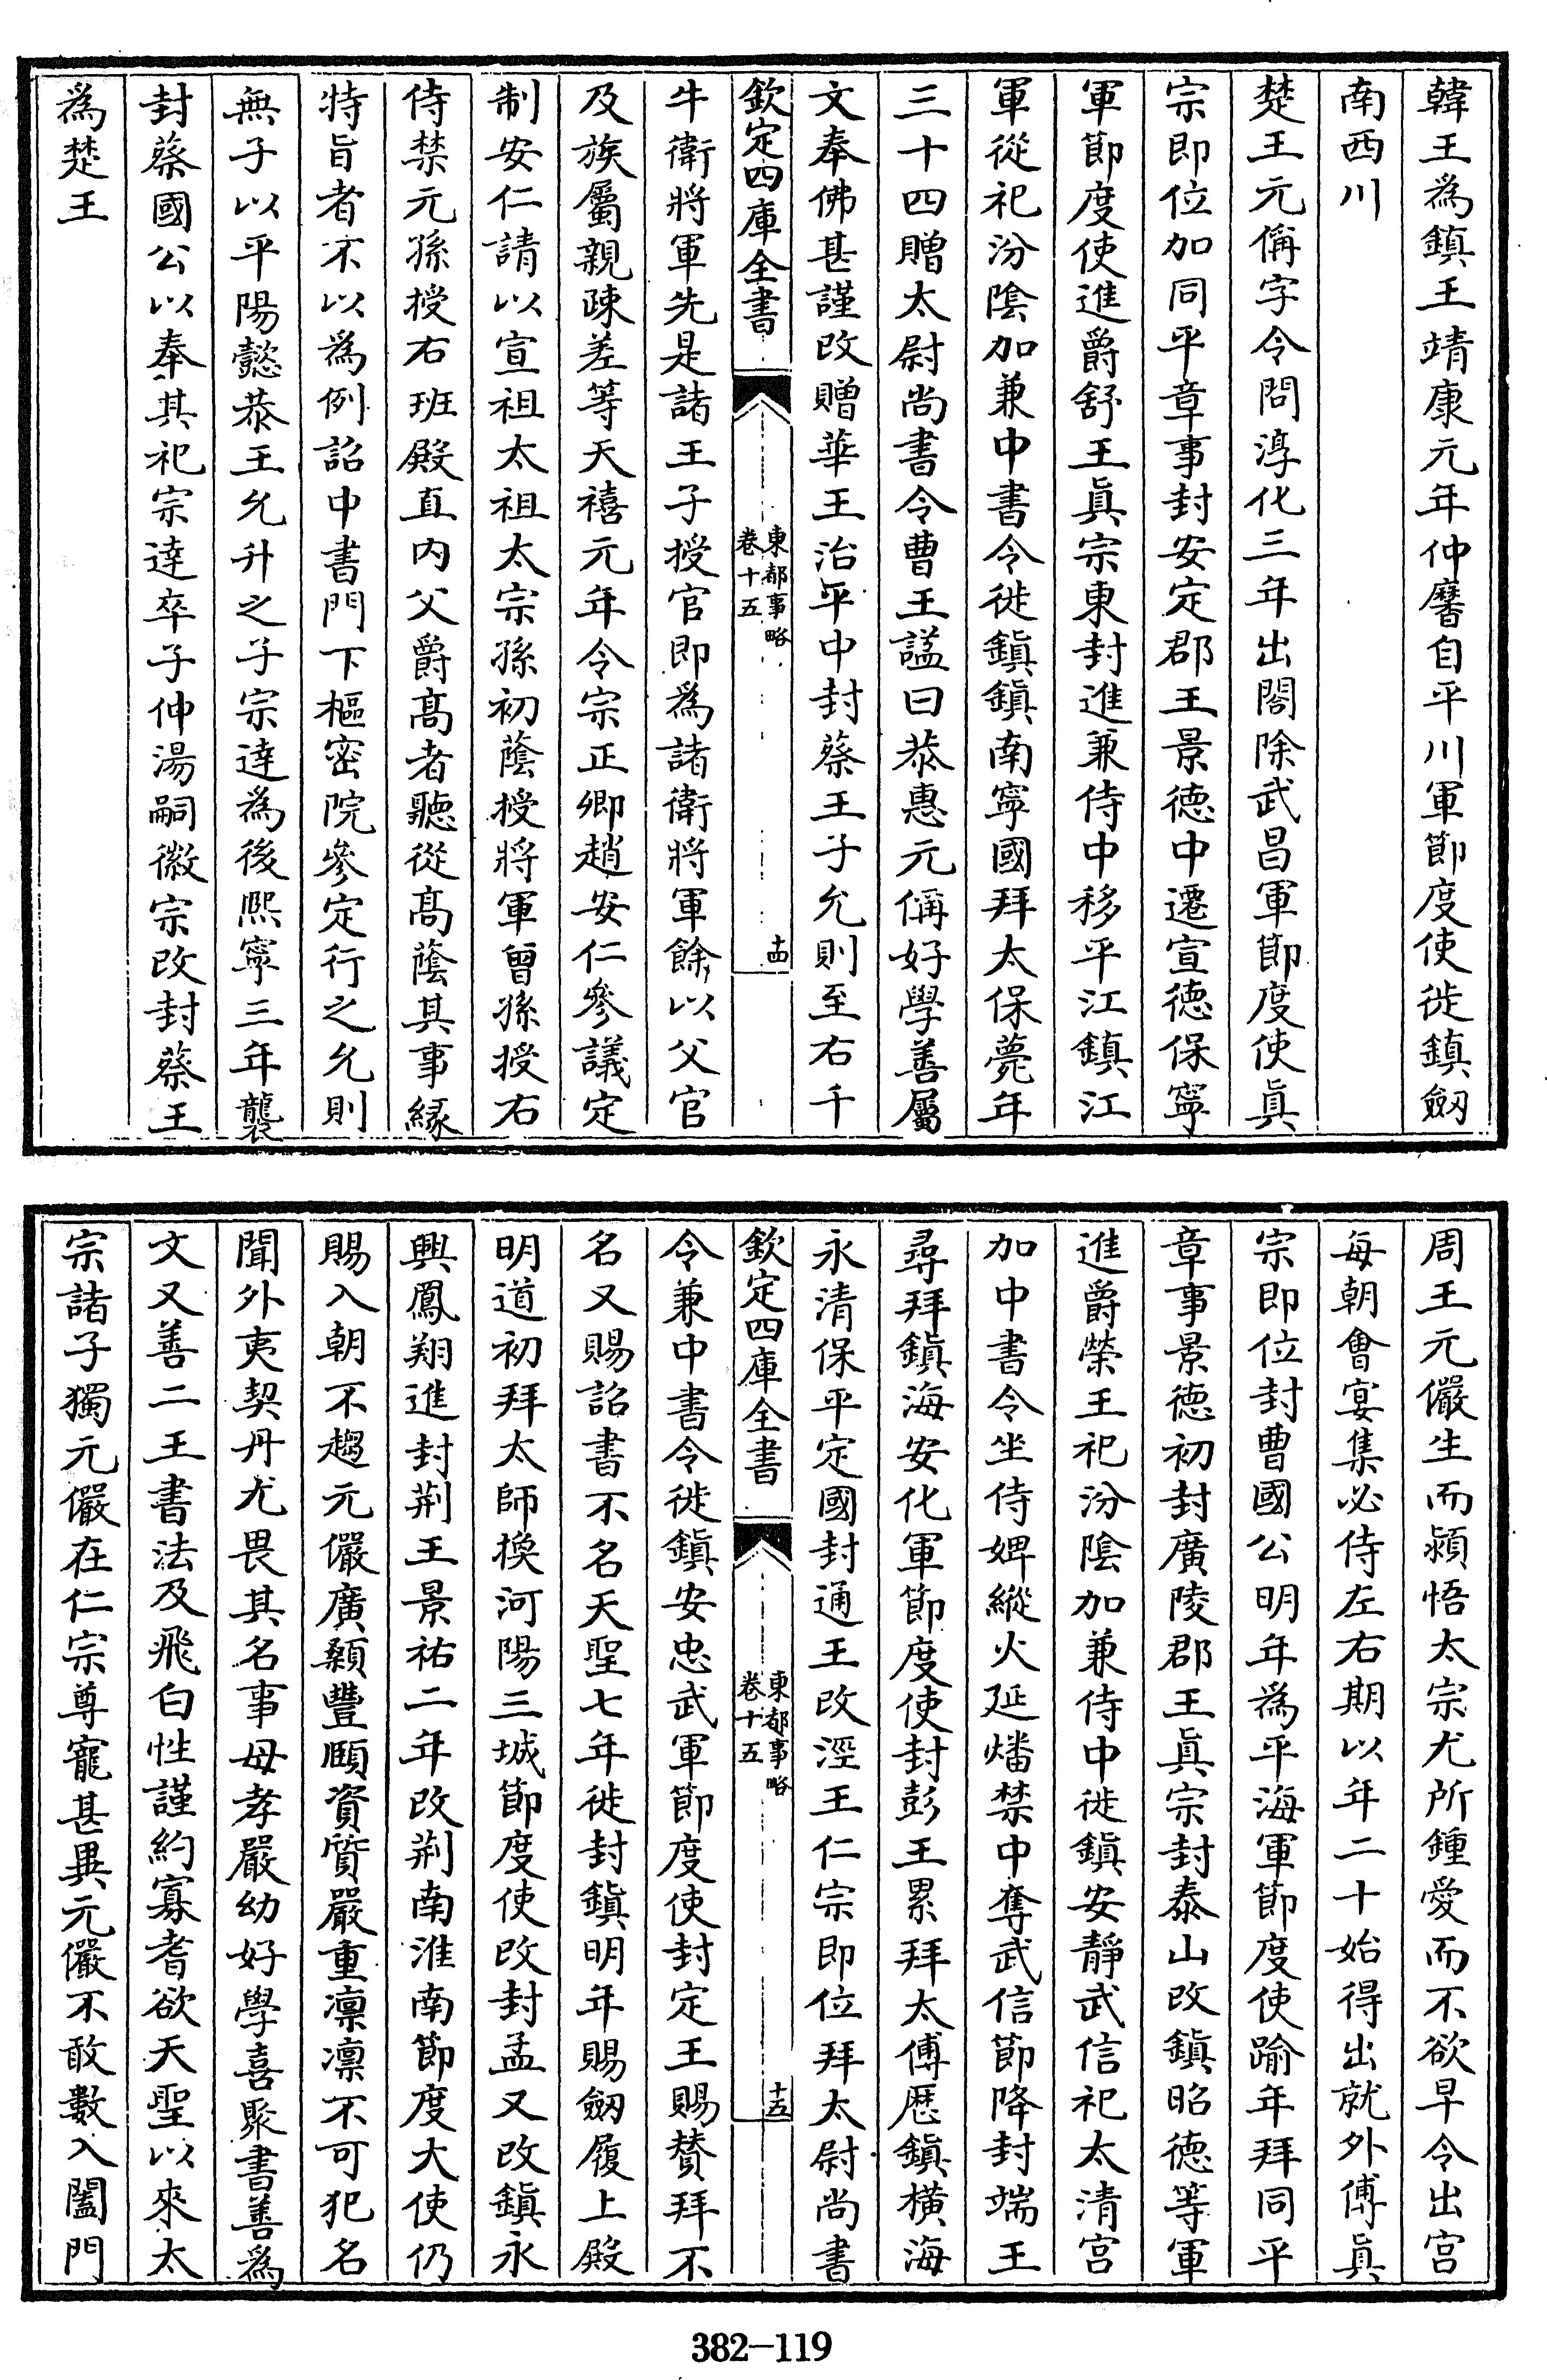 韓王為鎮王靖康元年仲麐自平川軍節度使徙鎮劔
南西川
楚王元偁字令問淳化三年出閤除武昌軍節度使真
宗即位加同平章事封安定郡王景德中遷宣德保寧
軍節度使進爵舒王真宗東封進兼侍中移平江鎮江
軍從祀汾陰加兼中書令徙鎮鎮南寧國拜太保薨年
三十四贈太尉尚書令曹王謚曰恭惠元偁好學善屬
文奉佛甚謹改贈華王治平中封蔡王子允則至右千
欽定四庫全書
東都事略
卷十五
十四
牛衛將軍先是諸王子授官即為諸衛將軍餘以父官
及族屬親疎差等天禧元年令宗正卿趙安仁參議定
制安仁請以宣祖太祖太宗孫初蔭授將軍曾孫授右
侍禁元孫授右班殿直内父爵髙者聽從髙蔭其事緣
特旨者不以為例詔中書門下樞密院參定行之允則
無子以平陽懿恭王允升之子宗達為後熙寧三年襲
封蔡國公以奉其祀宗達卒子仲湯嗣徽宗改封蔡王
為楚王
周王元儼生而潁悟太宗尤所鍾愛而不欲早令出宫
每朝會宴集必侍左右期以年二十始得出就外傅真
宗即位封曹國公明年為平海軍節度使踰年拜同平
章事景德初封廣陵郡王真宗封泰山改鎮昭德等軍
進爵榮王祀汾陰加兼侍中徙鎮安靜武信祀太清宫
加中書令坐侍婢縱火延燔禁中奪武信節降封端王
尋拜鎮海安化軍節度使封彭王累拜太傅歴鎮横海
永清保平定國封通王改涇王仁宗即位拜太尉尚書
欽定四庫全書
東都事略
卷十五
十五
令兼中書令徙鎮安忠武軍節度使封定王賜贊拜不
名又賜詔書不名天聖七年徙封鎮明年賜劔履上殿
明道初拜太師換河陽三城節度使改封孟又改鎮永
興鳳翔進封荆王景祐二年改荆南淮南節度大使仍
賜入朝不趨元儼廣顙豐頤資質嚴重凛凛不可犯名
聞外夷契丹尤畏其名事母孝嚴幼好學喜聚書善為
文又善二王書法及飛白性謹約寡耆欲天聖以來太
宗諸子獨元儼在仁宗尊寵甚異元儼不敢數入闔門
382—119